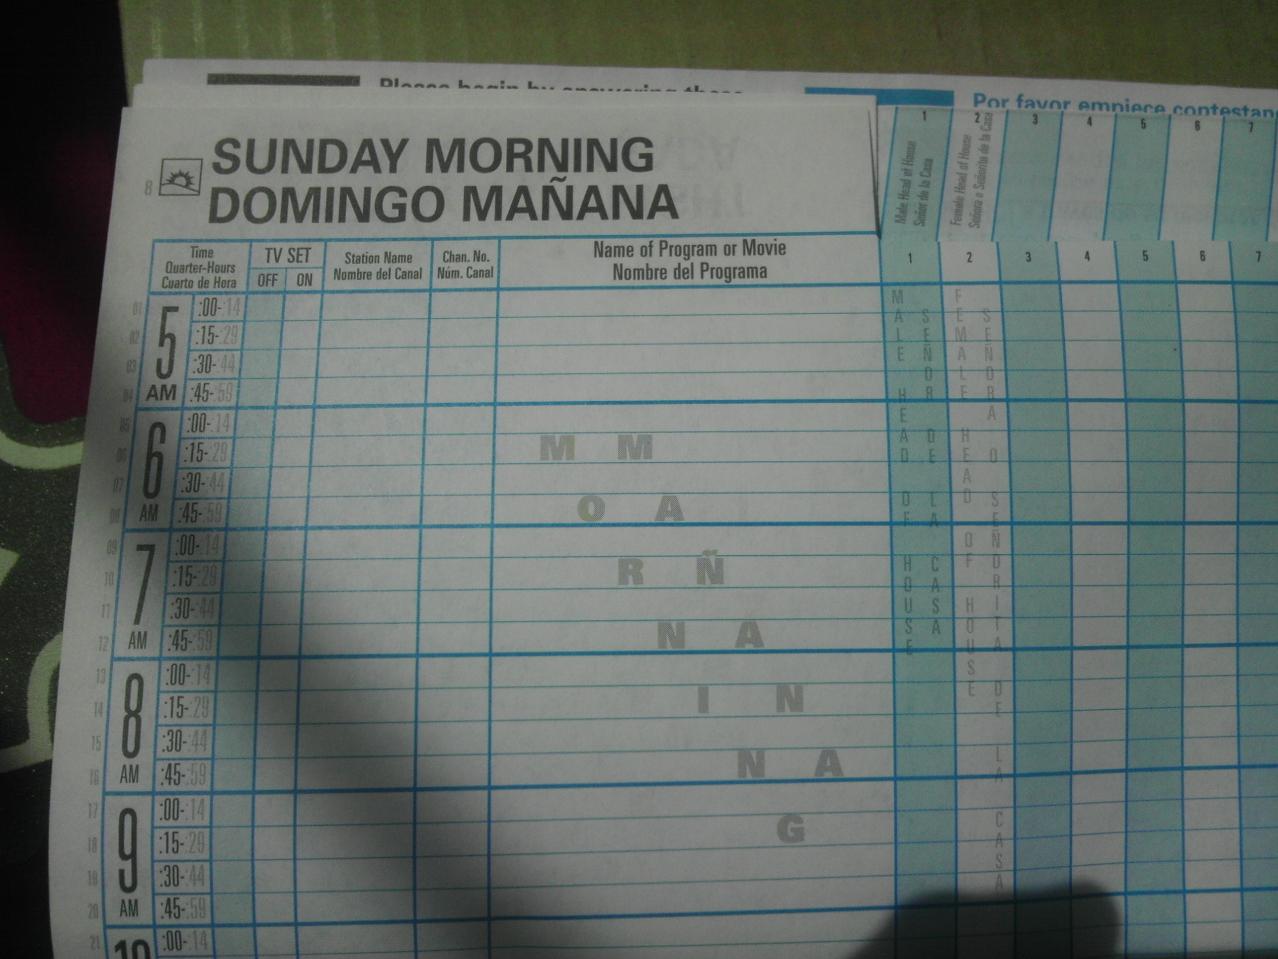 Please begin by answering these
Por favor empiece contestan
8
SUNDAY MORNING
DOMINGO MAÑANA
1 2 3 4 5 6 7
Male Head of House
Señor de la Casa
Female Head of House
Señora o Señorita de la Casa
Time
Quarter-Hours
Cuarto de Hora
TV SET
OFF ON
Station Name
Nombre del Canal
Chan. No.
Núm. Canal
Name of Program or Movie
Nombre del Programa
1 2 3 4 5 6 7
MALE HEAD OF HOUSE
SEÑOR DE LA CASA
FEMALE HEAD OF HOUSE
SEÑORA O SEÑORITA DE LA CASA
5 AM
01 :00-:14
02 :15-:29
03 :30-:44
04 :45-:59
6 AM
05 :00-:14
06 :15-:29
07 :30-:44
08 :45-:59
7 AM
09 :00-:14
10 :15-:29
11 :30-:44
12 :45-:59
8 AM
13 :00-:14
14 :15-:29
15 :30-:44
16 :45-:59
9 AM
17 :00-:14
18 :15-:29
19 :30-:44
20 :45-:59
10
21 :00-:14
MORNING
MAÑANA